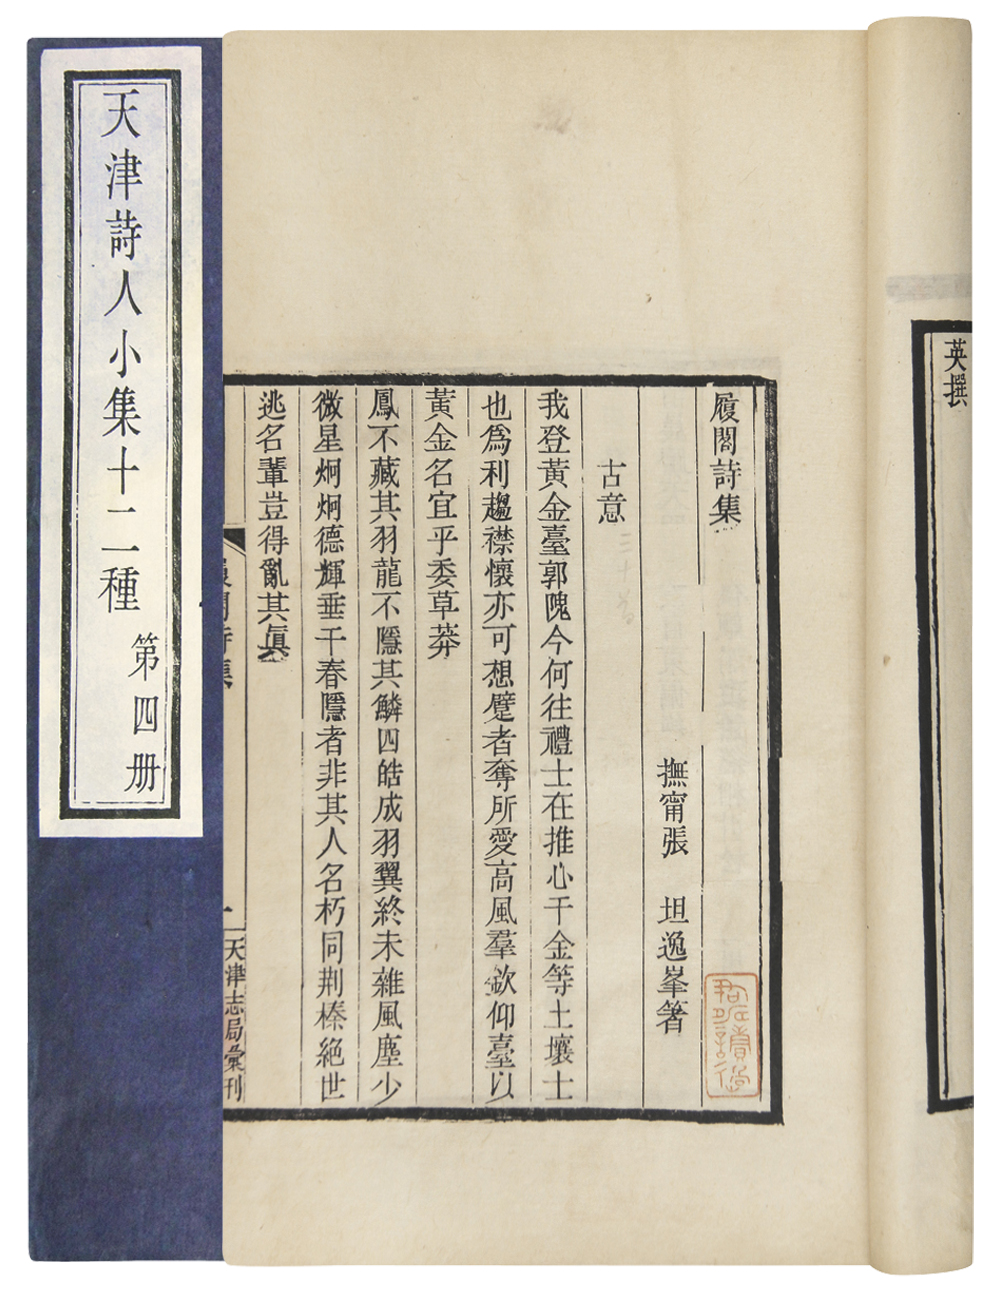 天津詩人小集十二種
第四册
英撰
履閣詩集
撫甯張　坦逸峯箸
古意
我登黃金臺郭隗今何往禮士在推心千金等土壤士
也爲利趨襟懷亦可想躄者奪所愛高風羣欽仰臺以
黃金名宜乎委草莽
鳳不藏其羽龍不隱其鱗四皓成羽翼終未雜風塵少
微星炯炯德輝垂千春隱者非其人名朽同荆榛絕世
逃名輩豈得亂其眞
天津志局彙刊